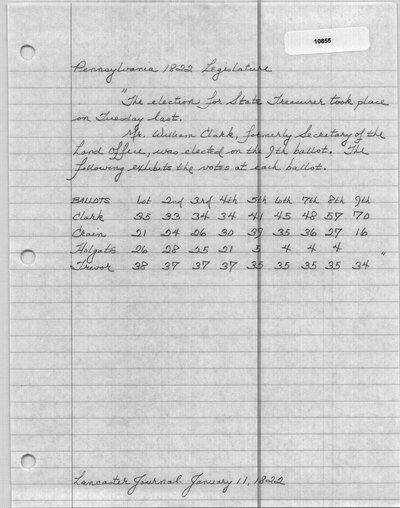 10855
Pennsylvania 1822 Legislature
"The election for State Treasurer took place
on Tuesday last.
Mr. William Clark, formerly Secretary of the
Land Office, was elected on the 9th ballot. The
following exhibits the votes at each ballot.
BALLOTS 1st 2nd 3rd 4th 5th 6th 7th 8th 9th
Clark 35 33 34 34 41 45 48 57 70
Crain 21 24 26 30 39 35 36 27 16
Holgate 26 28 25 21 5 4 4 4 "
Trevor 38 37 37 37 35 35 35 35 34
Lancaster Journal January 11, 1822